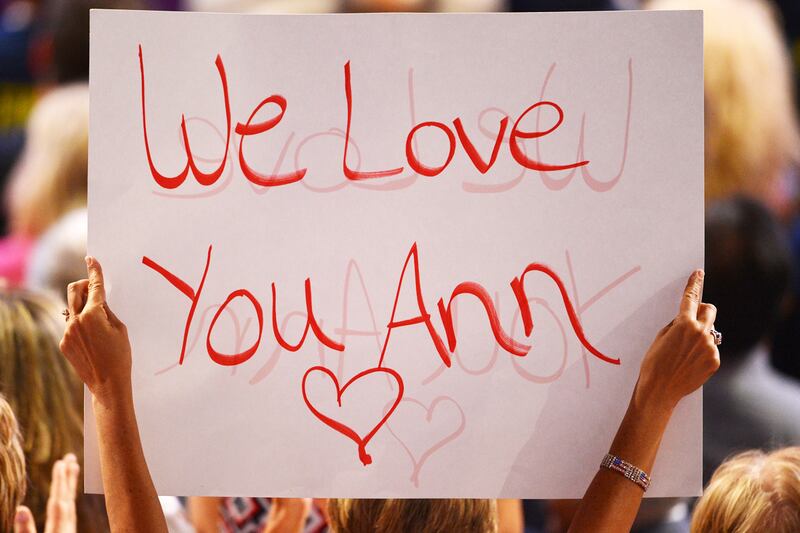 We Love
You Ann